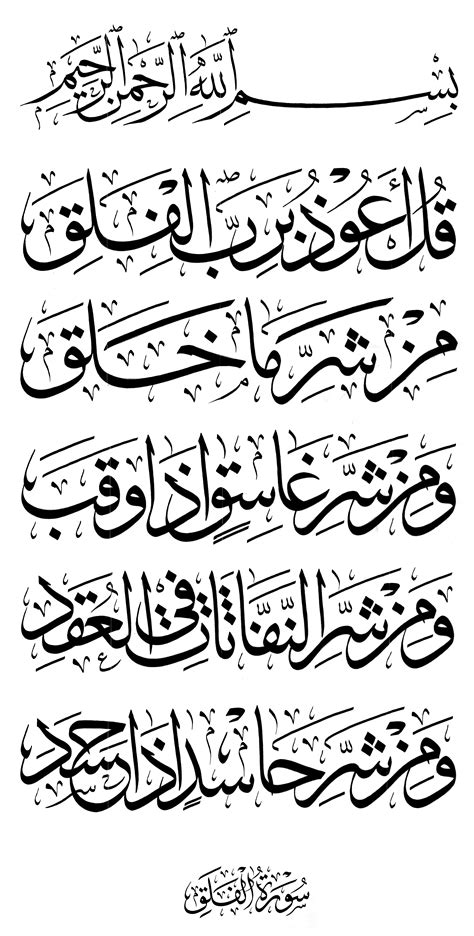 بِسْمِ اللّٰهِ الرَّحْمٰنِ الرَّحِيمِ
قُلْ أَعُوذُ بِرَبِّ الْفَلَقِ
مِنْ شَرِّ مَا خَلَقَ
وَمِنْ شَرِّ غَاسِقٍ اِذَا وَقَبَ
وَمِنْ شَرِّ النَّفَّاثَاتِ فِي الْعُقَدِ
وَمِنْ شَرِّ حَاسِدٍ اِذَا حَسَدَ
سُورَةُ الْفَلَقِ